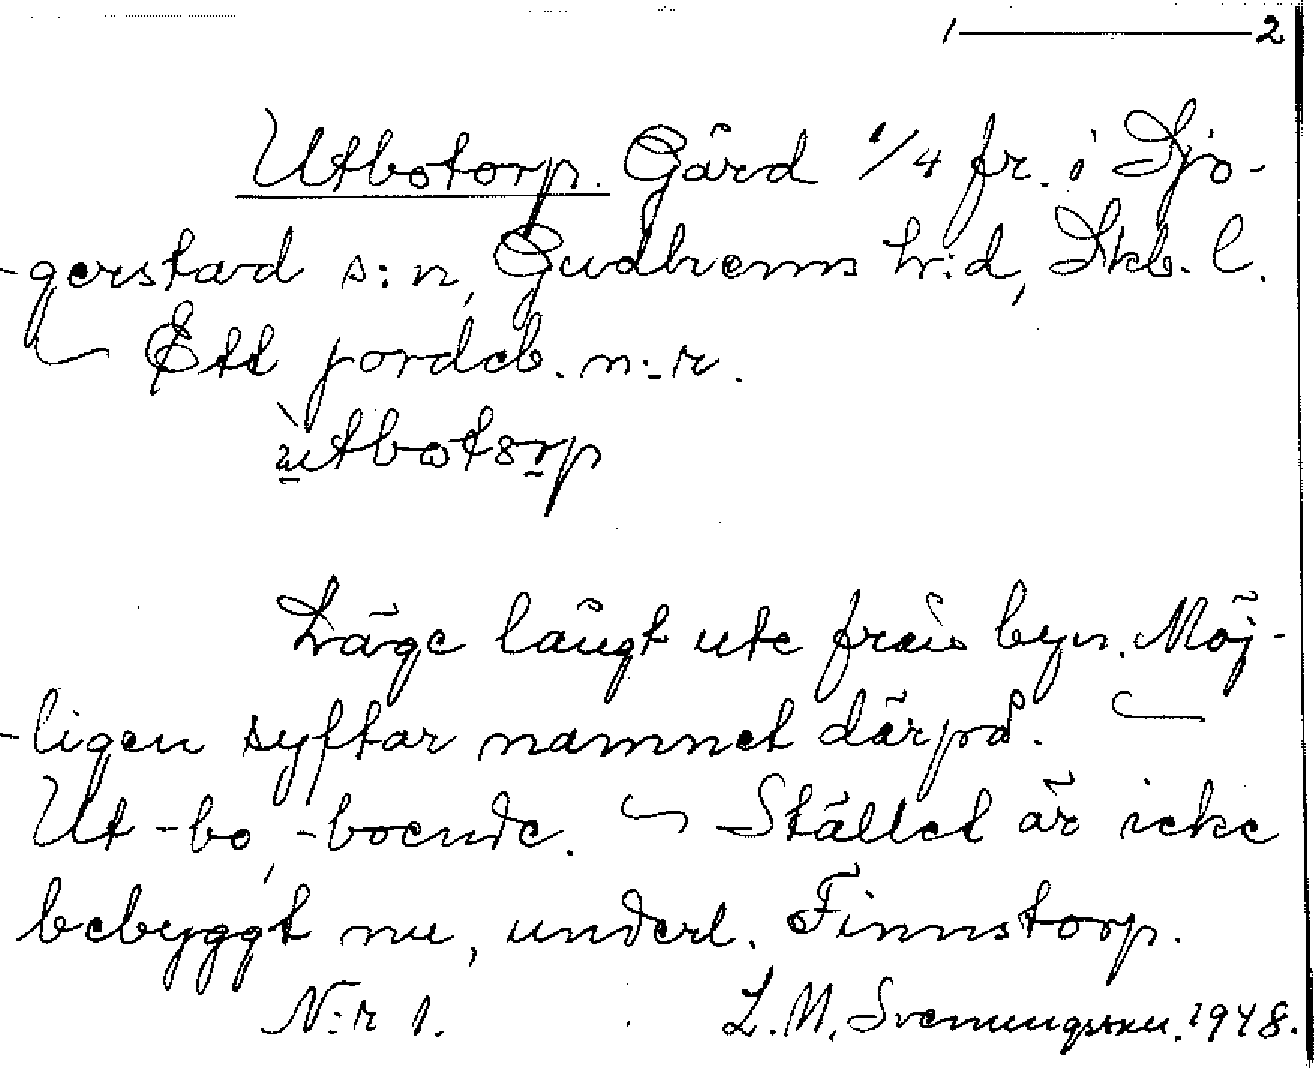 1 — 2
Utbotorp. Gård 1/4 fr. i Sjo-
-gerstad s:n, Gudhems h:d, Skb. l.
— Ett jordeb. n:r.
ùtbotorp
Läge långt ute från byn. Möj-
-ligen syftar namnet därpå. —
Ut-bo, -boende. — Stället är icke
bebyggt nu, underl. Finnstorp.
N:r 1. L. M. Svenungsson. 1948.